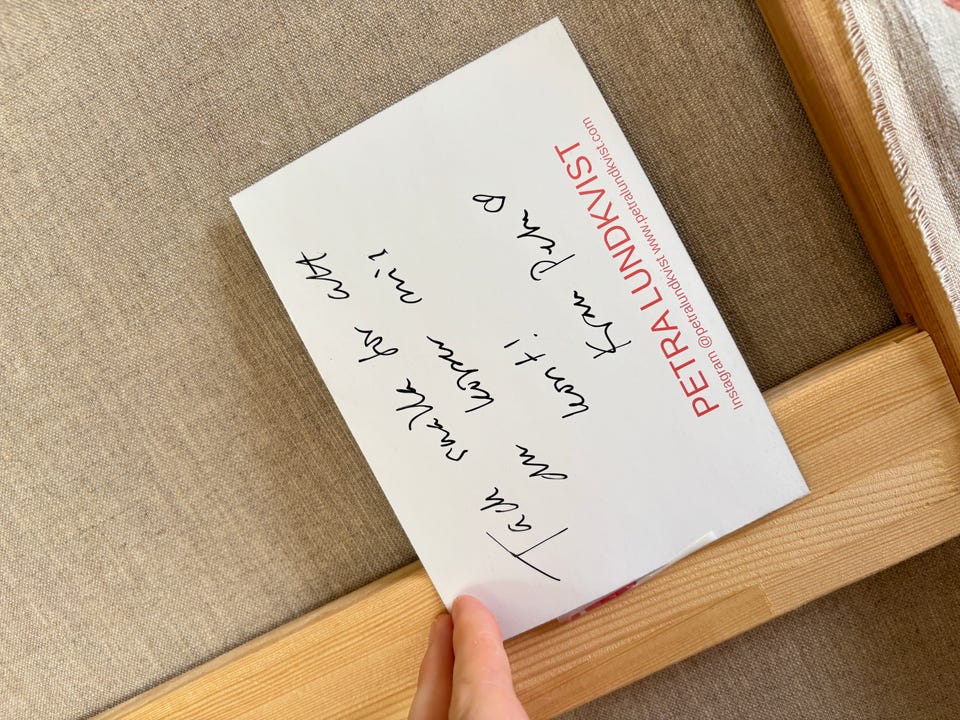 Tack snälla för att
du köper min
konst!
Kram Petra
PETRA LUNDKVIST
Instagram @petralundkvist www.petralundkvist.com